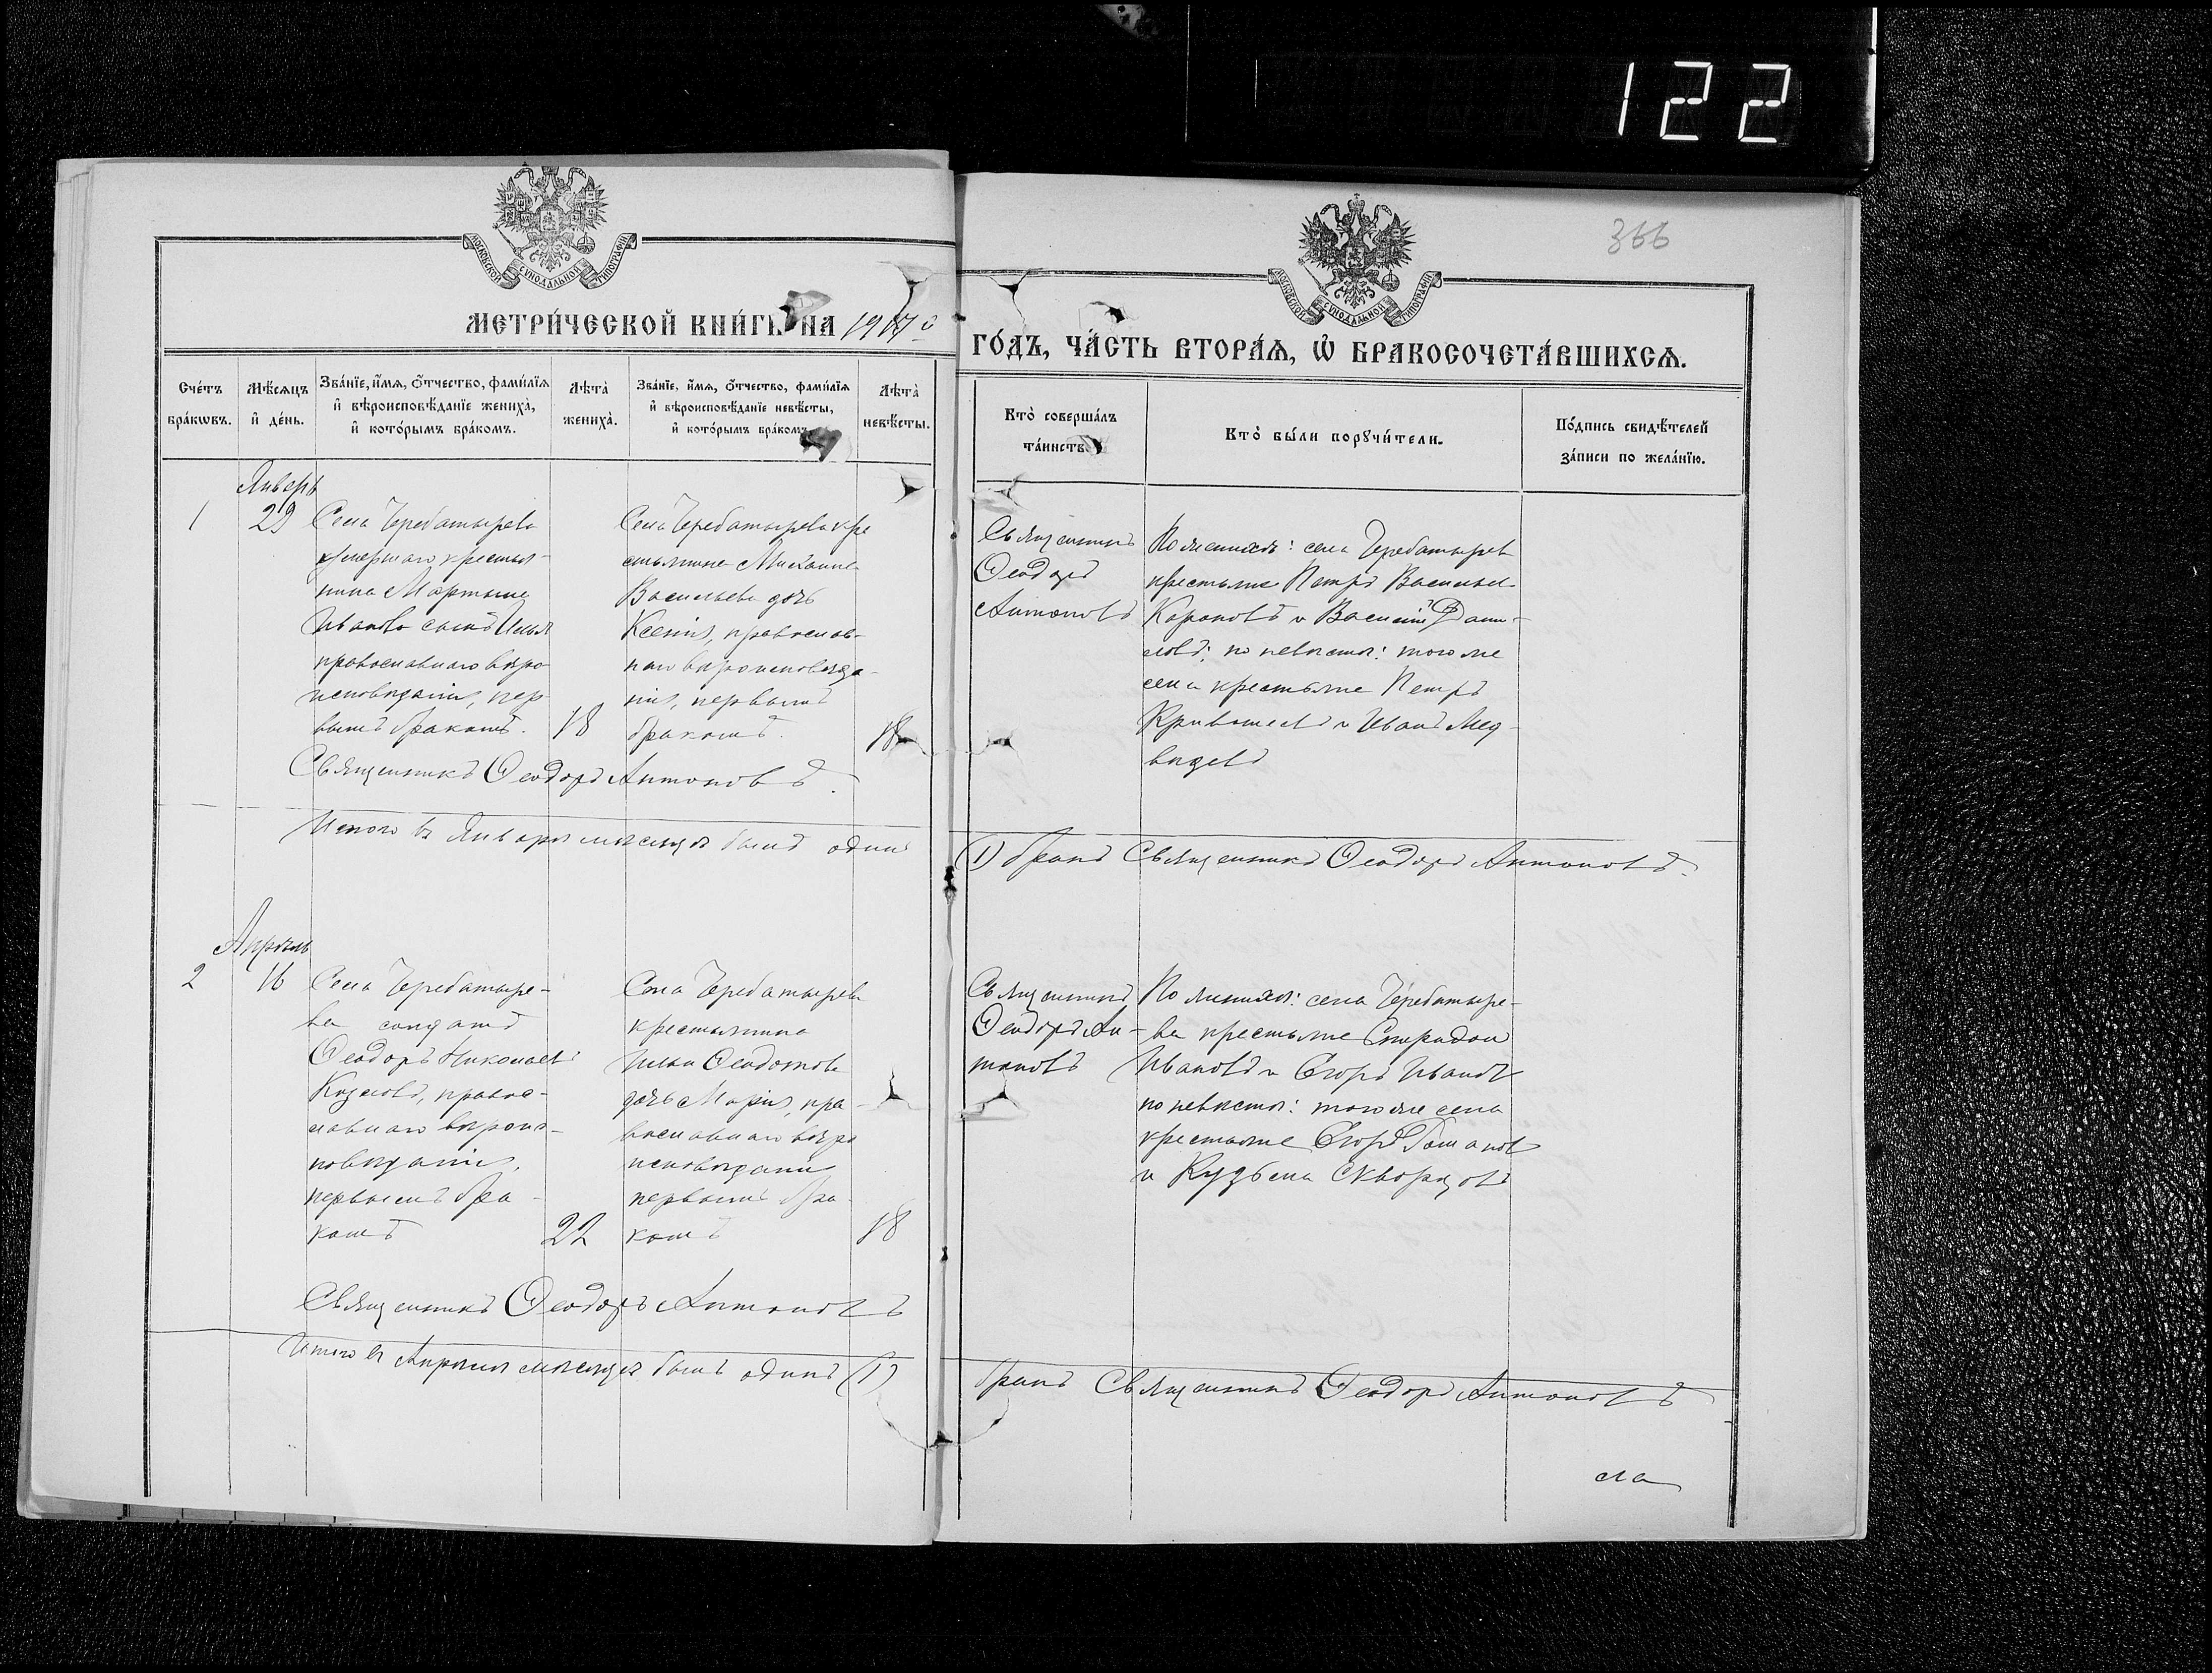 122
366
МОСКОВСКОЙ СѴНОДАЛЬНОЙ ТИПОГРАФІИ
МОСКОВСКОЙ СѴНОДАЛЬНОЙ ТИПОГРАФІИ
МЕТРИ́ЧЕСКОЙ КНИ́ГИ НА
ГО́ДЪ, ЧА́СТЬ ВТОРА́Ѧ, Ѡ҆ БРАКОСОЧЕТА́ВШИХСѦ.
Сче́тъ
бра́кѡвъ.
Мѣ́сѧцъ
и҆ де́нь.
Зва́нїе, и҆́мѧ, ѻ҆́тчество, фами́лїѧ
и҆ вѣроисповѣ́данїе жениха̀,
и҆ кото́рымъ бра́комъ.
Лѣта̀
жениха̀.
Зва́нїе, и҆́мѧ, ѻ҆́тчество, фами́лїѧ
и҆ вѣроисповѣ́данїе невѣ́сты,
и҆ кото́рымъ бра́комъ
Лѣта̀
невѣ́сты.
Кто̀ соверша́лъ
та́инство
Кто̀ бы́ли порꙋчи́тели.
По́дпись свидѣ́телей
за́писи по жела́нїю.
Январь
1
29
Села Теребатырева
умершаго крестья-
нина Мартына
Иванова сынъ Илья
православнаго вѣро
исповѣданія, пер
вымъ бракомъ.
18
Села Теребатырева кре
стьянина Михаила
Васильева дочь
Ксенія, православ-
наго вѣроисповѣда-
нія, первымъ
бракомъ.
18
Священникъ
Ѳеодоръ
Антоновъ
По женихѣ: села Теребатырева
крестьяне Петръ Васильевъ
и Василій Дани-
ловъ; по невѣстѣ: того же
села крестьяне Петръ
и Иванъ Мед-
вѣдевъ
Священникъ Ѳеодоръ Антоновъ.
Итого въ Январѣ мѣсяцѣ былъ одинъ
(1) бракъ Священникъ Ѳеодоръ Антоновъ.
Апрѣль
2
16
Села Теребатыре-
ва солдатъ
Ѳеодоръ Николаевъ
Козловъ, правос-
лавнаго вѣроис-
повѣданія,
первымъ бра-
комъ
22
Села Теребатырева
крестьянина
Ильи Ѳедотова
дочь Марія, пра-
вославнаго вѣро
исповѣданія
первымъ бра-
комъ
18
Священникъ
Ѳеодоръ Ан-
тоновъ
По женихѣ: села Теребатыре-
ва крестьяне Спиридонъ
Ивановъ и Егоръ Ивановъ
по невѣстѣ: того же села
крестьяне Егоръ
и Кузьма Скворцовъ
Священникъ Ѳеодоръ Антоновъ
Итого въ Апрѣлѣ мѣсяцѣ былъ одинъ (1)
бракъ Священникъ Ѳеодоръ Антоновъ